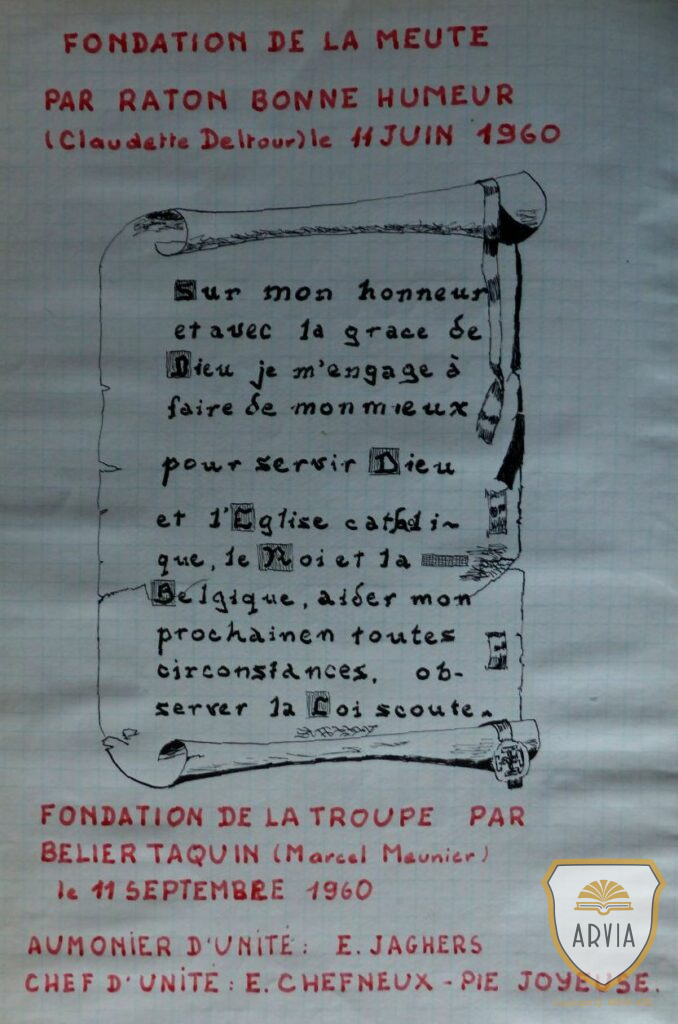 FONDATION DE LA MEUTE
PAR RATON BONNE HUMEUR
(Claudette Deltour) le 11 JUIN 1960
Sur mon honneur
et avec la grace de
Dieu je m'engage à
faire de mon mieux
pour servir Dieu
et l'Eglise catholi~
que, le Roi et la
Belgique, aider mon
prochain en toutes
circonstances, ob-
server la Loi scoute.
FONDATION DE LA TROUPE PAR
BELIER TAQUIN (Marcel Meunier)
le 11 SEPTEMBRE 1960
AUMONIER D'UNITÉ: E. JAGHERS
CHEF D'UNITÉ: E. CHEFNEUX - PIE JOYEUSE.
ARVIA